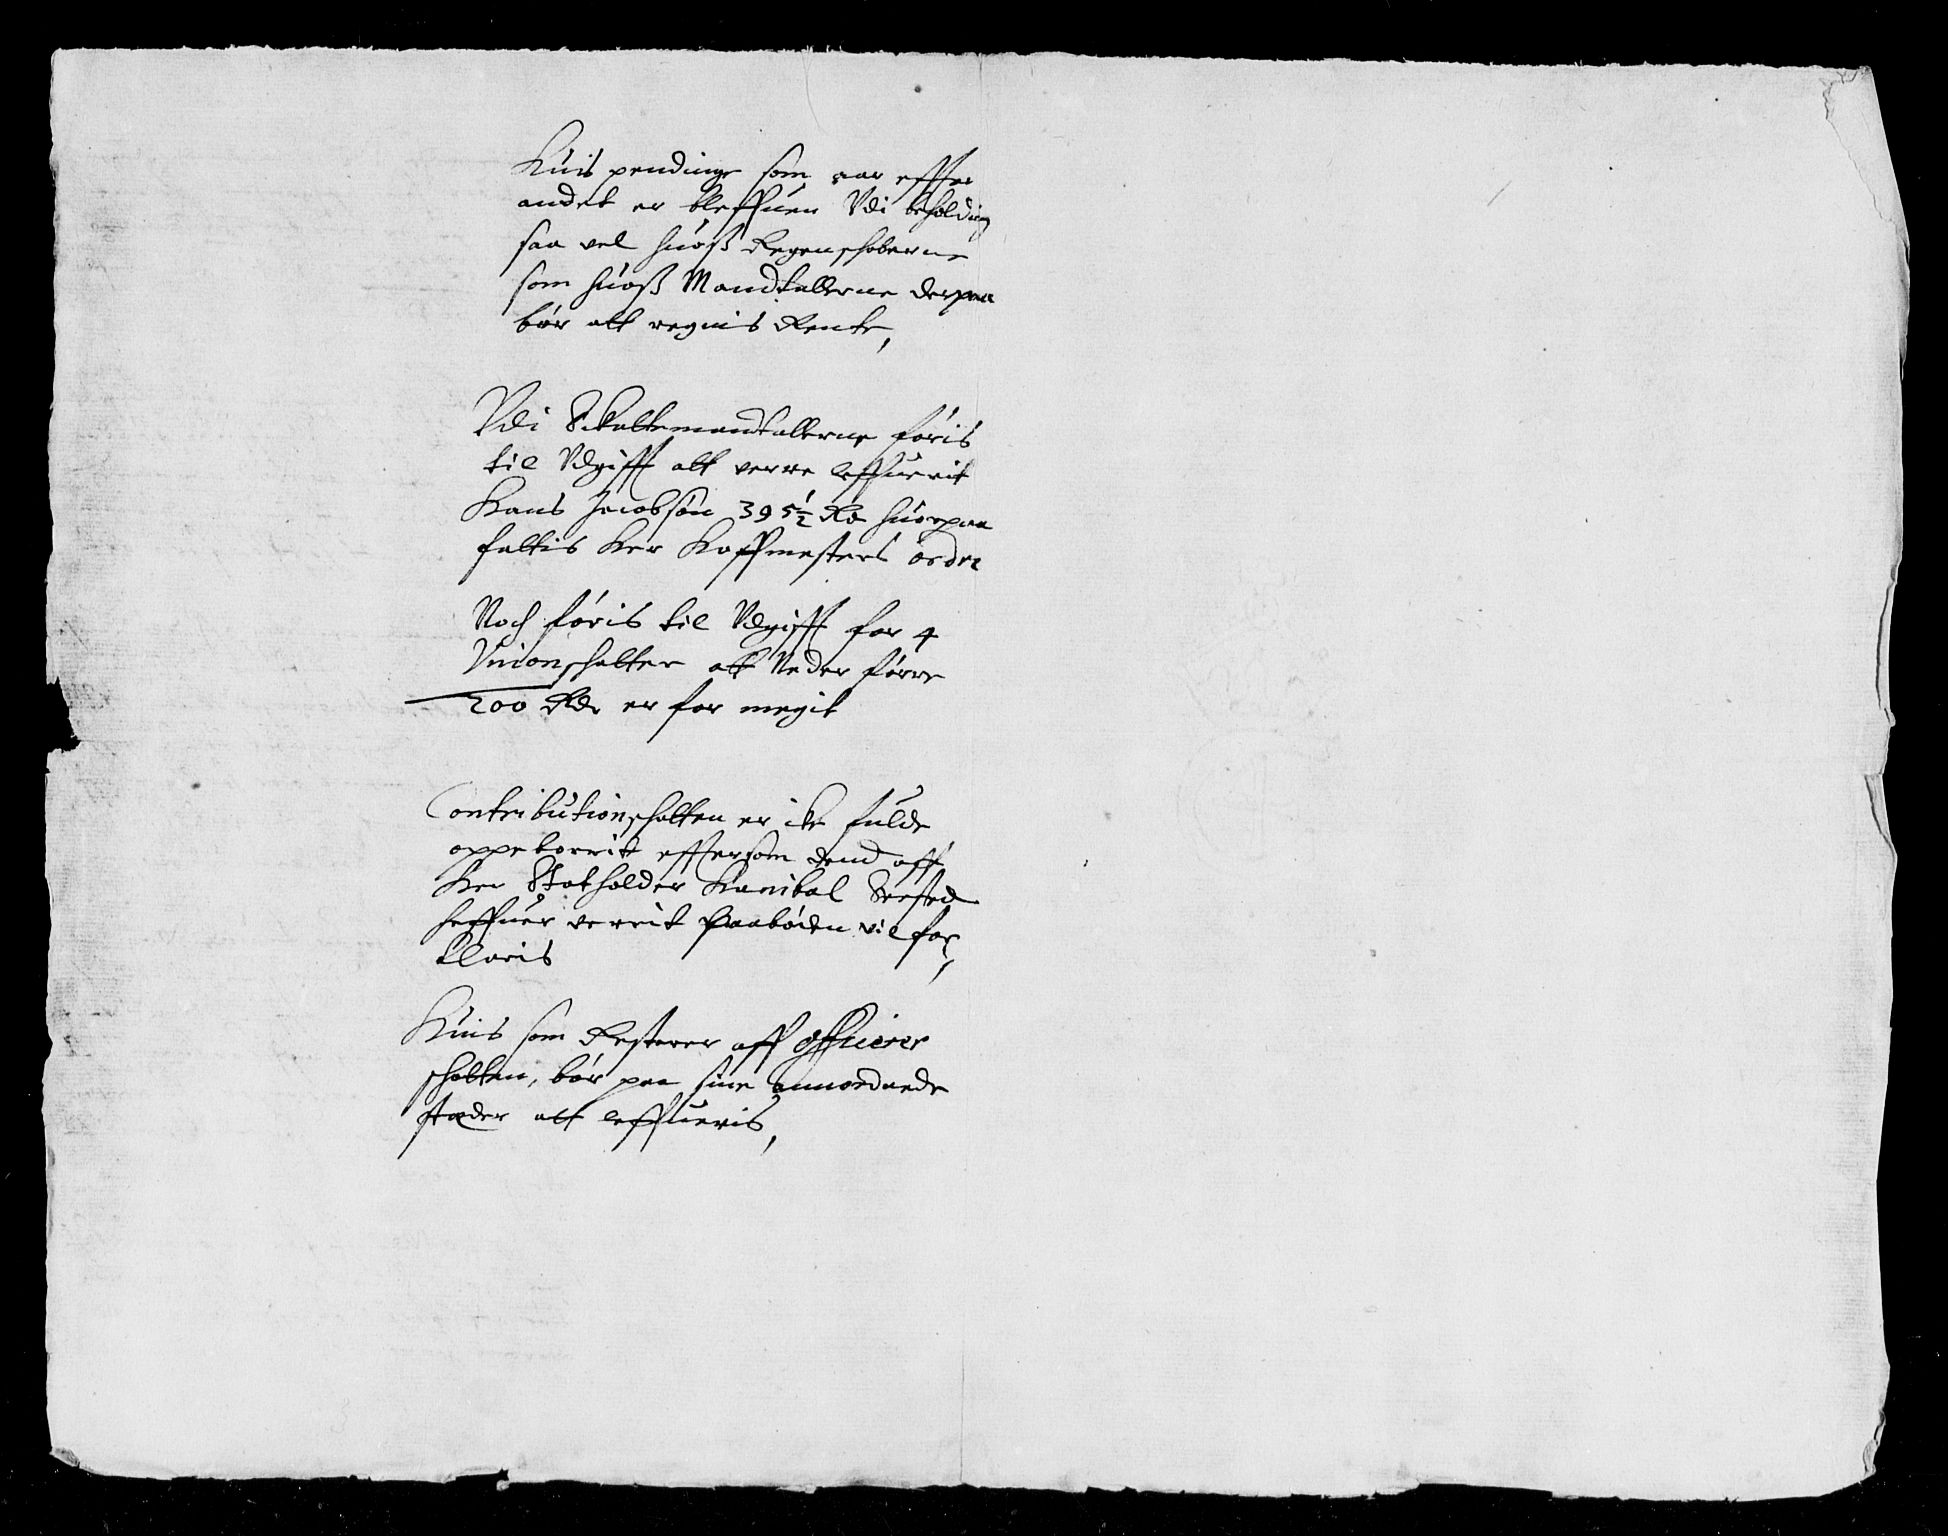 Huis pendinge som aar effter
andet er bleffuen Vdi beholding
saa vel huoß Regenschaberne
som huoß Mandtallerne derpaa
bør att regnis Rente,
Vdi Skattemandtallerne føris
til Vdgifft att verre leffuerit
Hans Jacobsøn 395½ Rd huorpaa
fattis Her Hoffmesters ordre
Noch føris til Vdgifft for 4
Vnionschatter att Neder førre
200 Rdr er for megit
Contributionschatten er icke fulde
oppeborrit efftersom dend aff
Her Statholder Hanibal Seested
heffuer verrit paabøden vil for,
klaris
Huis som Resterer aff officerer
schatten, bør paa sine annordnede
stæder att leffueris,